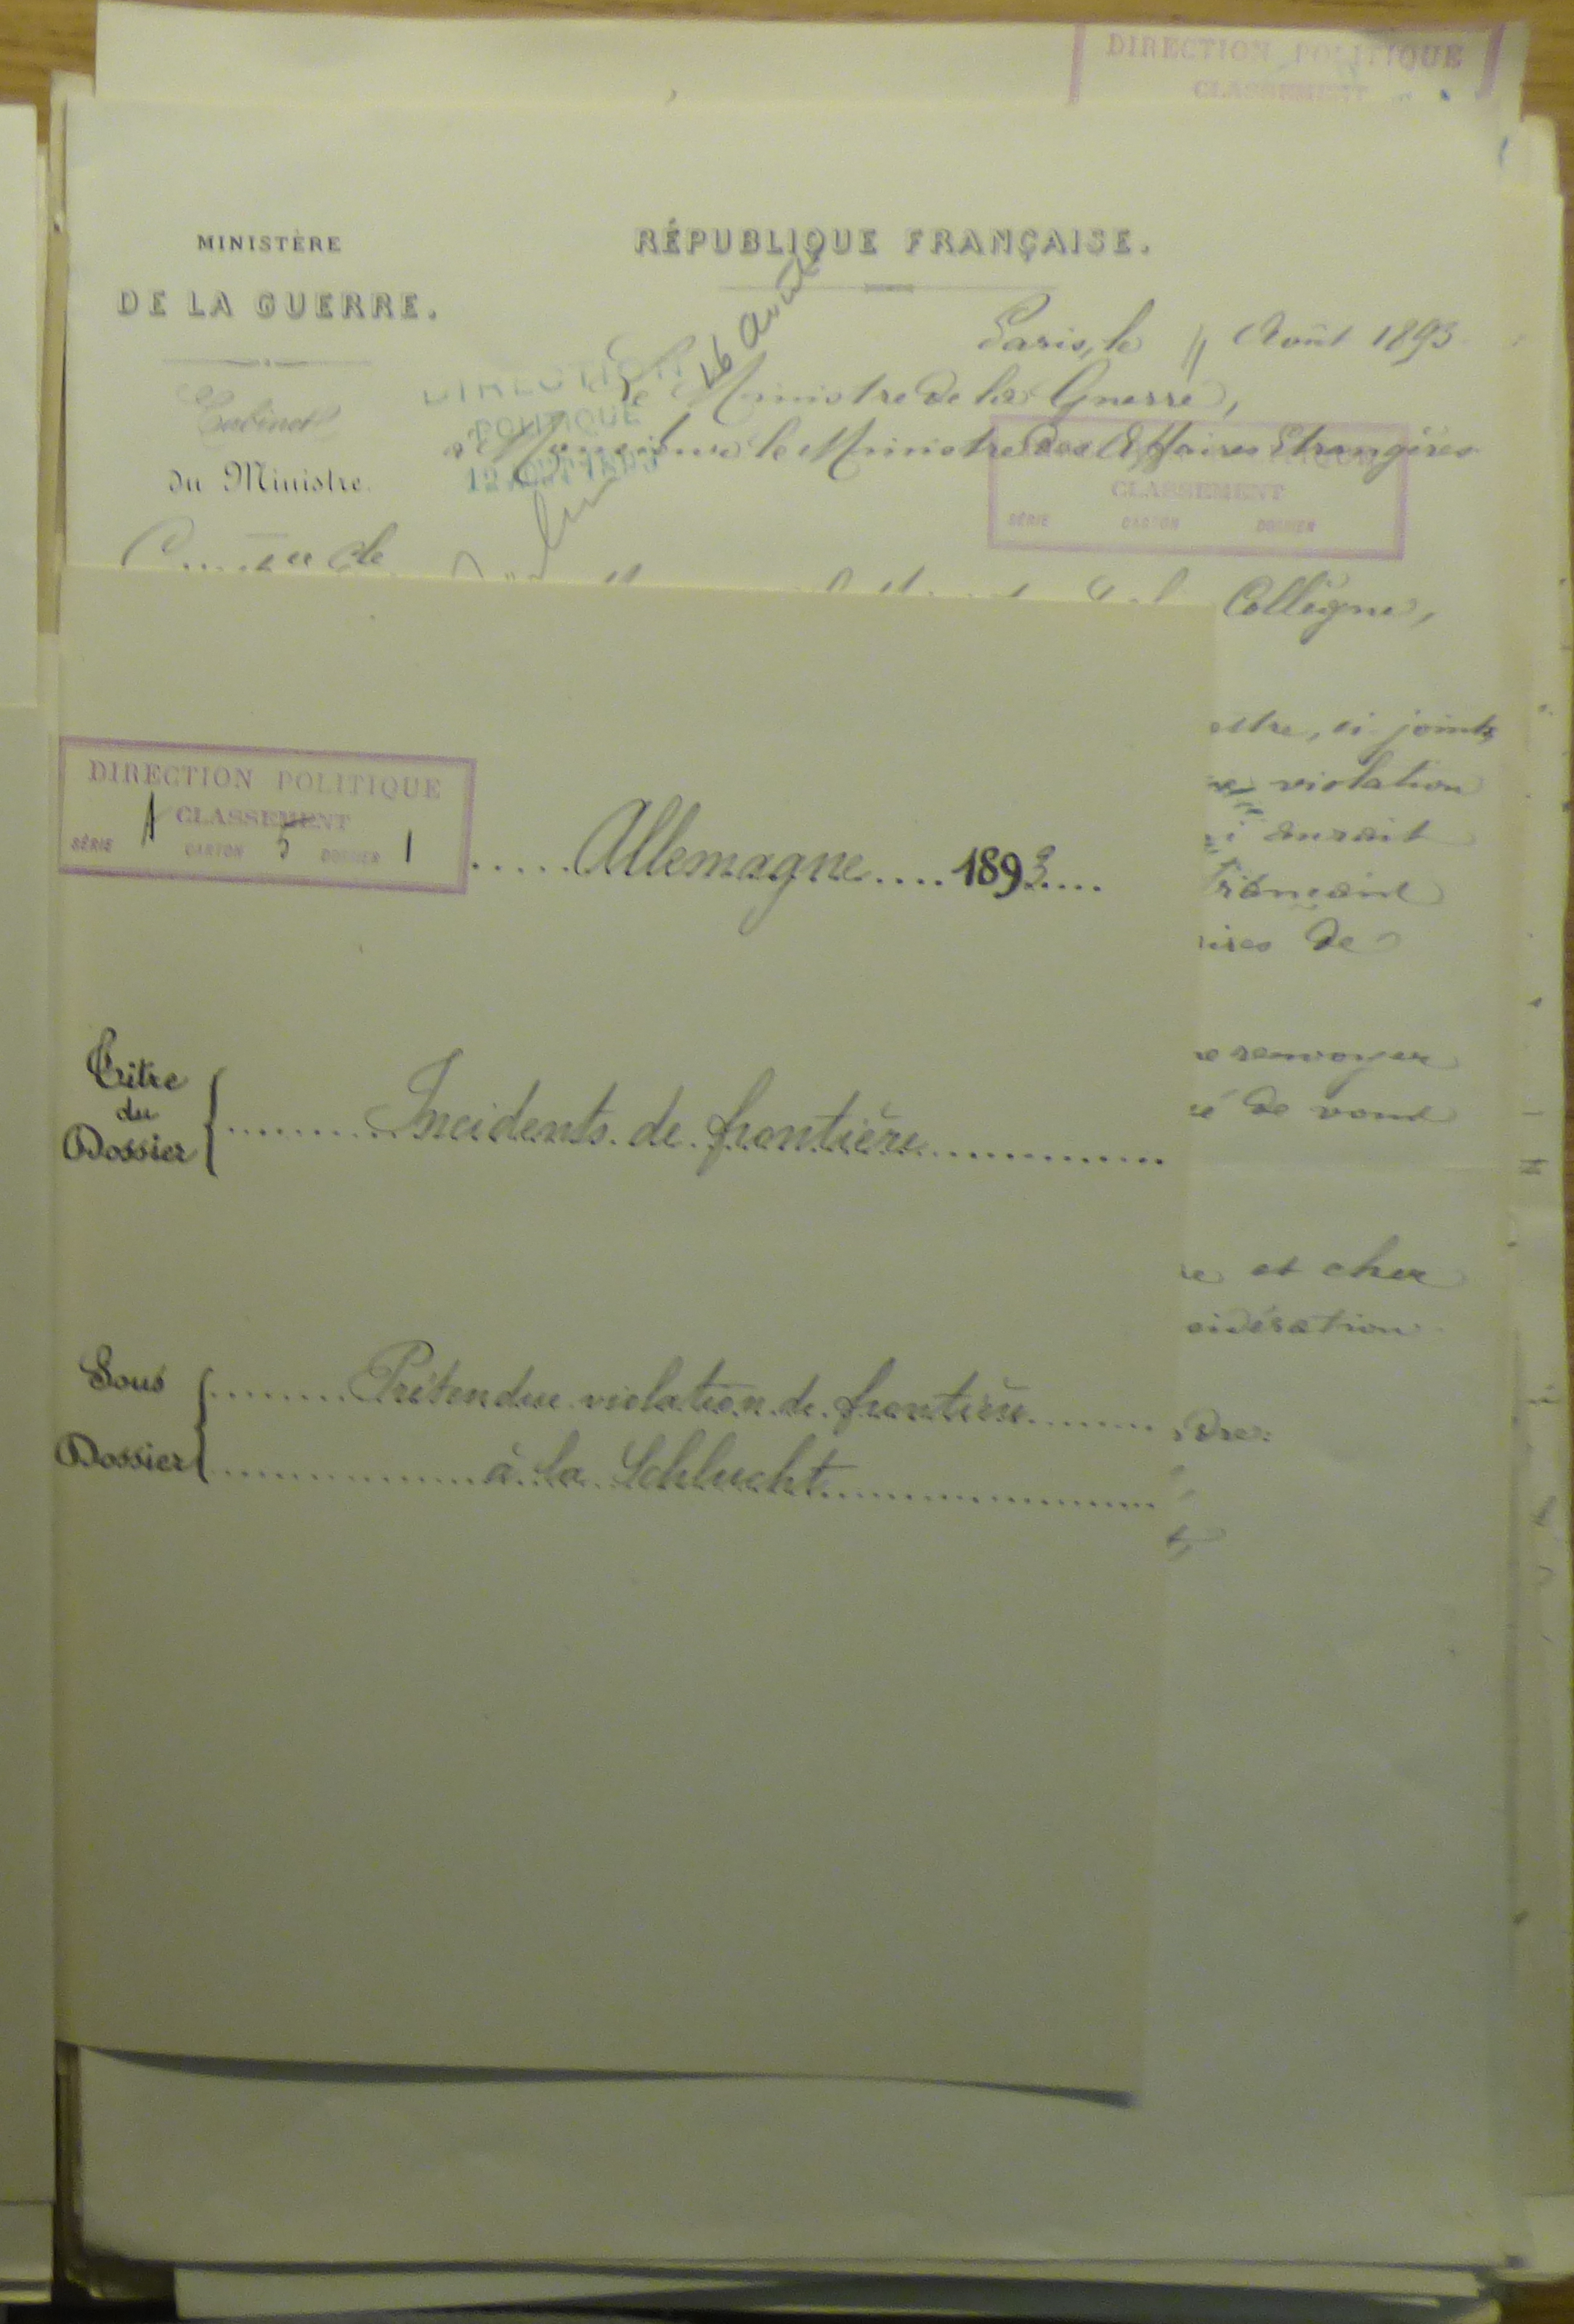 DIRECTION POLITIQUE
CLASSEMENT
MINISTÈRE
DE LA GUERRE.
Cabinet
du Ministre.
RÉPUBLIQUE FRANÇAISE.
16 Août
Paris, le 11 Août 1893
Le Ministre de la Guerre,
à Monsieur le Ministre des Affaires Etrangères
DIRECTION
POLITIQUE
12
CLASSEMENT
SÉRIE CARTON DOSSIER
Collègue,
ettre, ci-jointe,
violation
aurait
Français
de
renvoyer
de vous
et cher
sidération
DIRECTION POLITIQUE
CLASSEMENT
SÉRIE A CARTON 5 DOSSIER 1
Allemagne 1893
Titre
du
Dossier
Incidents de frontière
Sous
Dossier
Prétendue violation de frontière
à la Schlucht